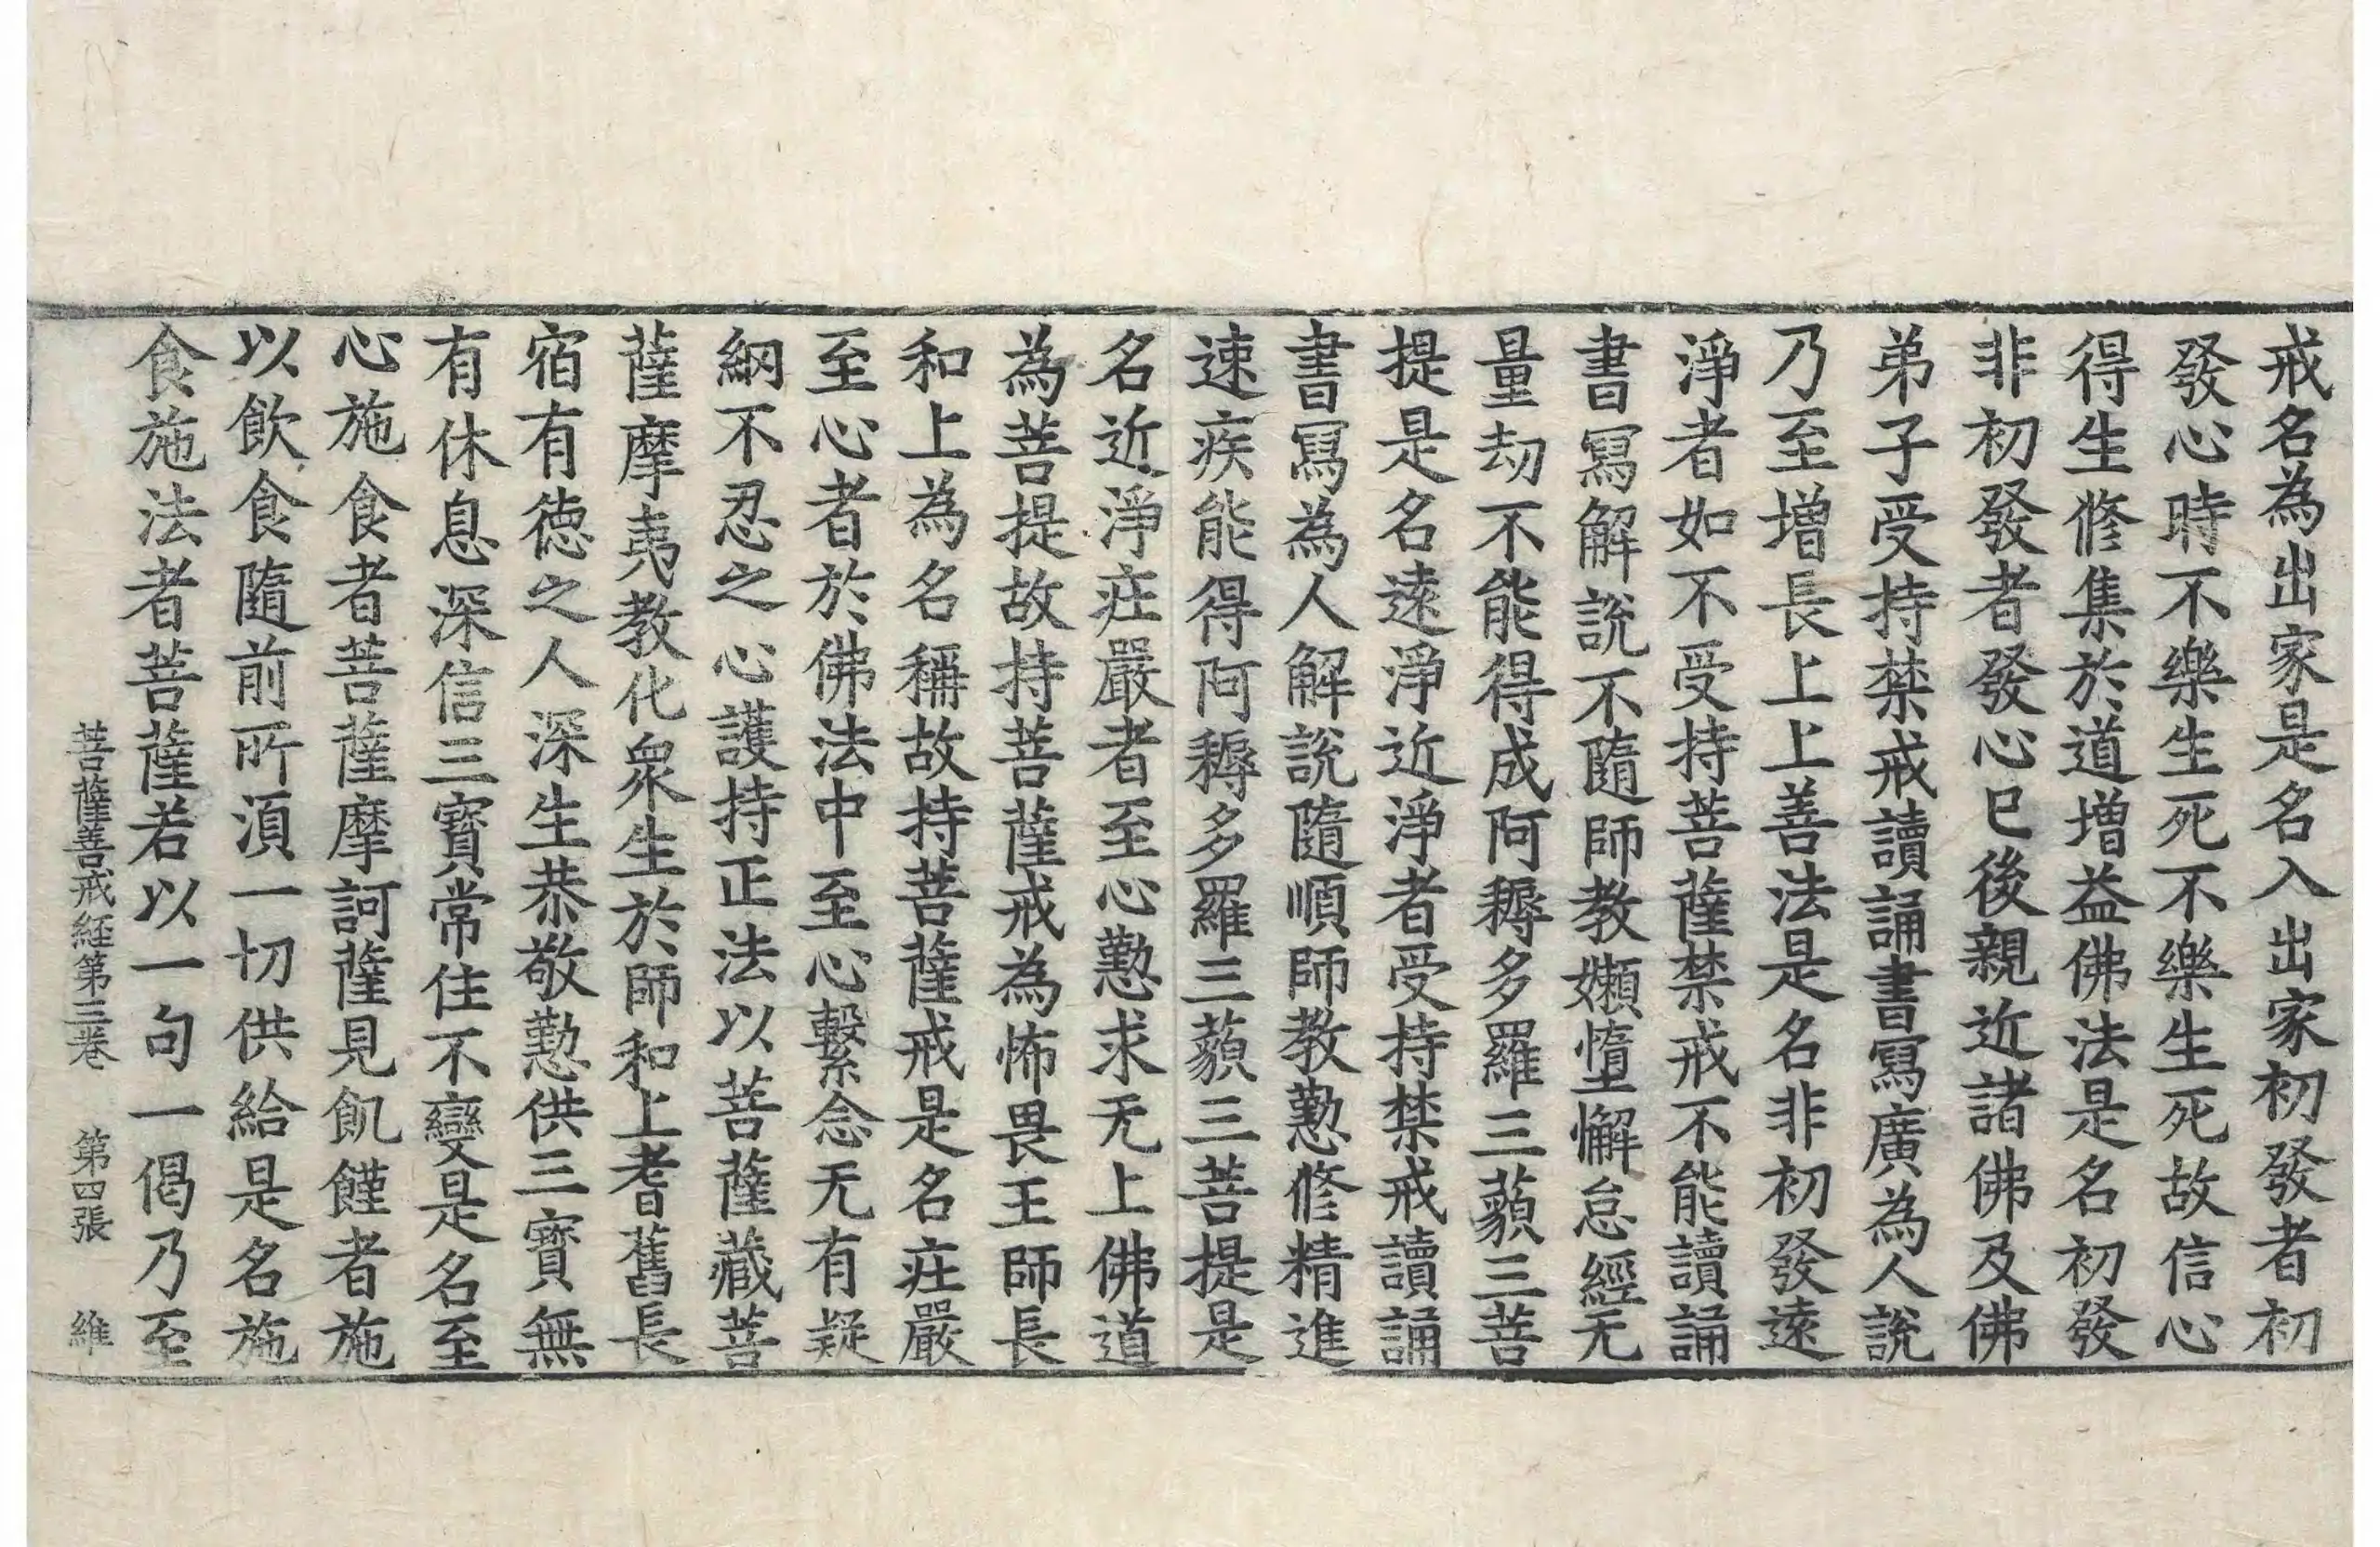 戒名為出家是名入出家初發者初
發心時不樂生死不樂生死故信心
得生修集於道增益佛法是名初發
非初發者發心已後親近諸佛及佛
弟子受持禁戒讀誦書寫廣為人說
乃至增長上上善法是名非初發遠
淨者如不受持菩薩禁戒不能讀誦
書寫解說不隨師教嬾惰懈怠經无
量劫不能得成阿耨多羅三藐三菩
提是名遠淨近淨者受持禁戒讀誦
書寫為人解說隨順師教懃修精進
速疾能得阿耨多羅三藐三菩提是
名近淨莊嚴者至心懃求无上佛道
為菩提故持菩薩戒為怖畏王師長
和上為名稱故持菩薩戒是名莊嚴
至心者於佛法中至心繫念无有疑
網不忍之心護持正法以菩薩藏菩
薩摩夷教化眾生於師和上耆舊長
宿有德之人深生恭敬懃供三寶無
有休息深信三寶常住不變是名至
心施食者菩薩摩訶薩見飢饉者施
以飲食隨前所須一切供給是名施
食施法者菩薩若以一句一偈乃至
菩薩善戒経第三卷　第四張　維